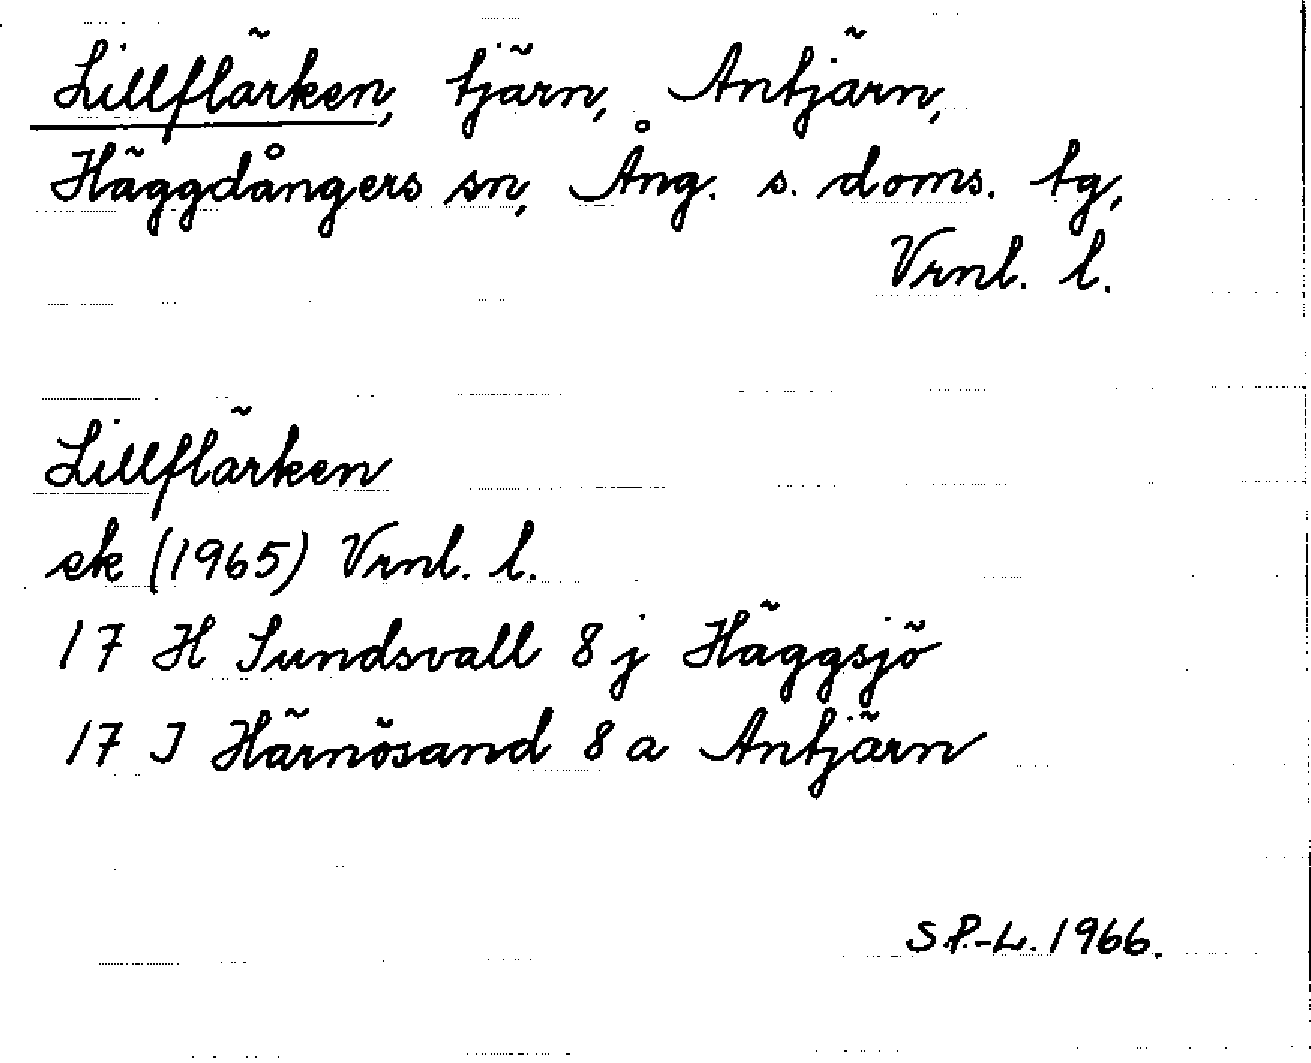 Lillflärken, tjärn, Antjärn,
Häggdångers sn, Ång. s. doms. tg,
Vrnl. l.
Lillflärken
ek (1965) Vrnl. l.
17 H Sundsvall 8 j Häggsjö
17 I Härnösand 8 a Antjärn
S.P.-L. 1966.